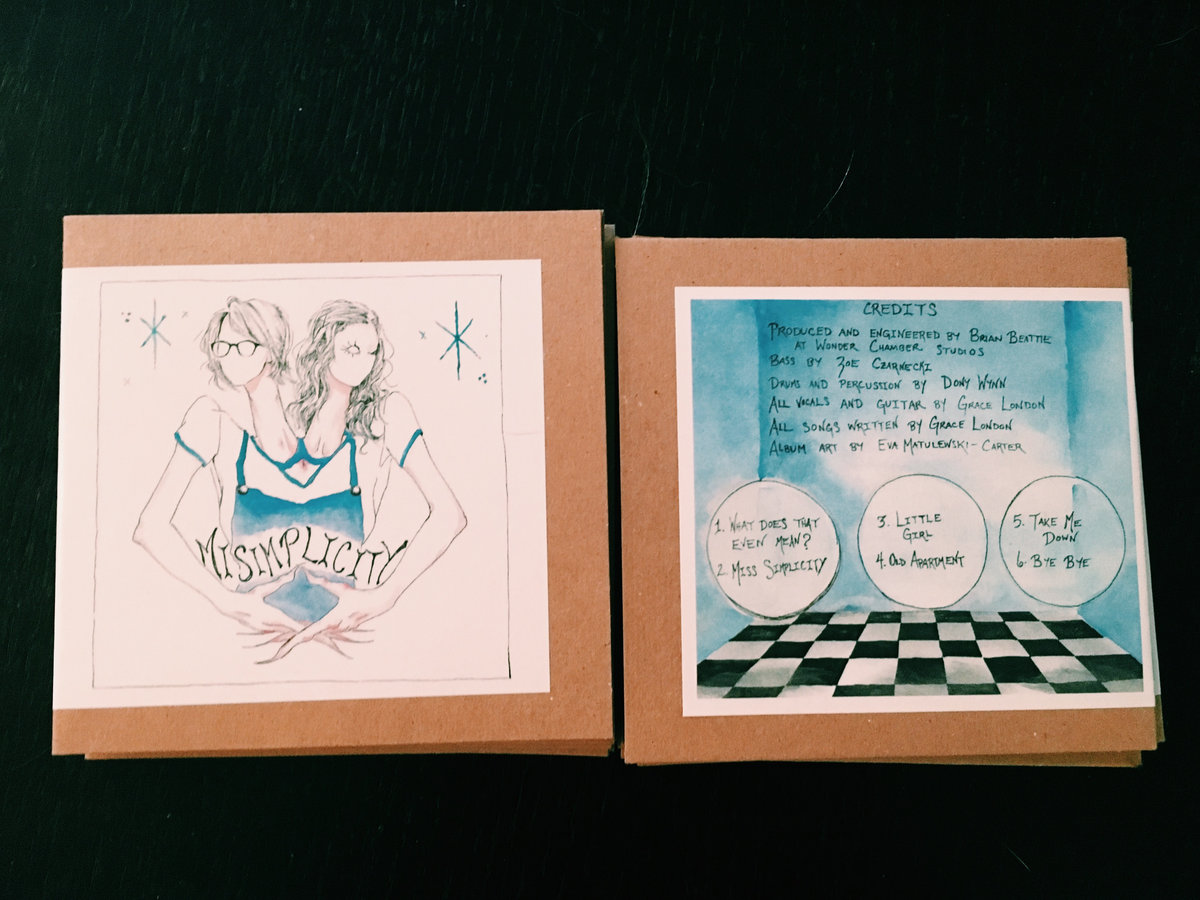 MISIMPLICITY
CREDITS
PRODUCED AND ENGINEERED BY BRIAN BEATTIE
AT WONDER CHAMBER STUDIOS
BASS BY ZOE CZARNECKI
DRUMS AND PERCUSSION BY DONY WYNN
ALL VOCALS AND GUITAR BY GRACE LONDON
ALL SONGS WRITTEN BY GRACE LONDON
ALBUM ART BY EVA MATULEWSKI-CARTER
1. WHAT DOES THAT
EVEN MEAN?
2. MISS SIMPLICITY
3. LITTLE
GIRL
4. OLD APARTMENT
5. TAKE ME
DOWN
6. BYE BYE